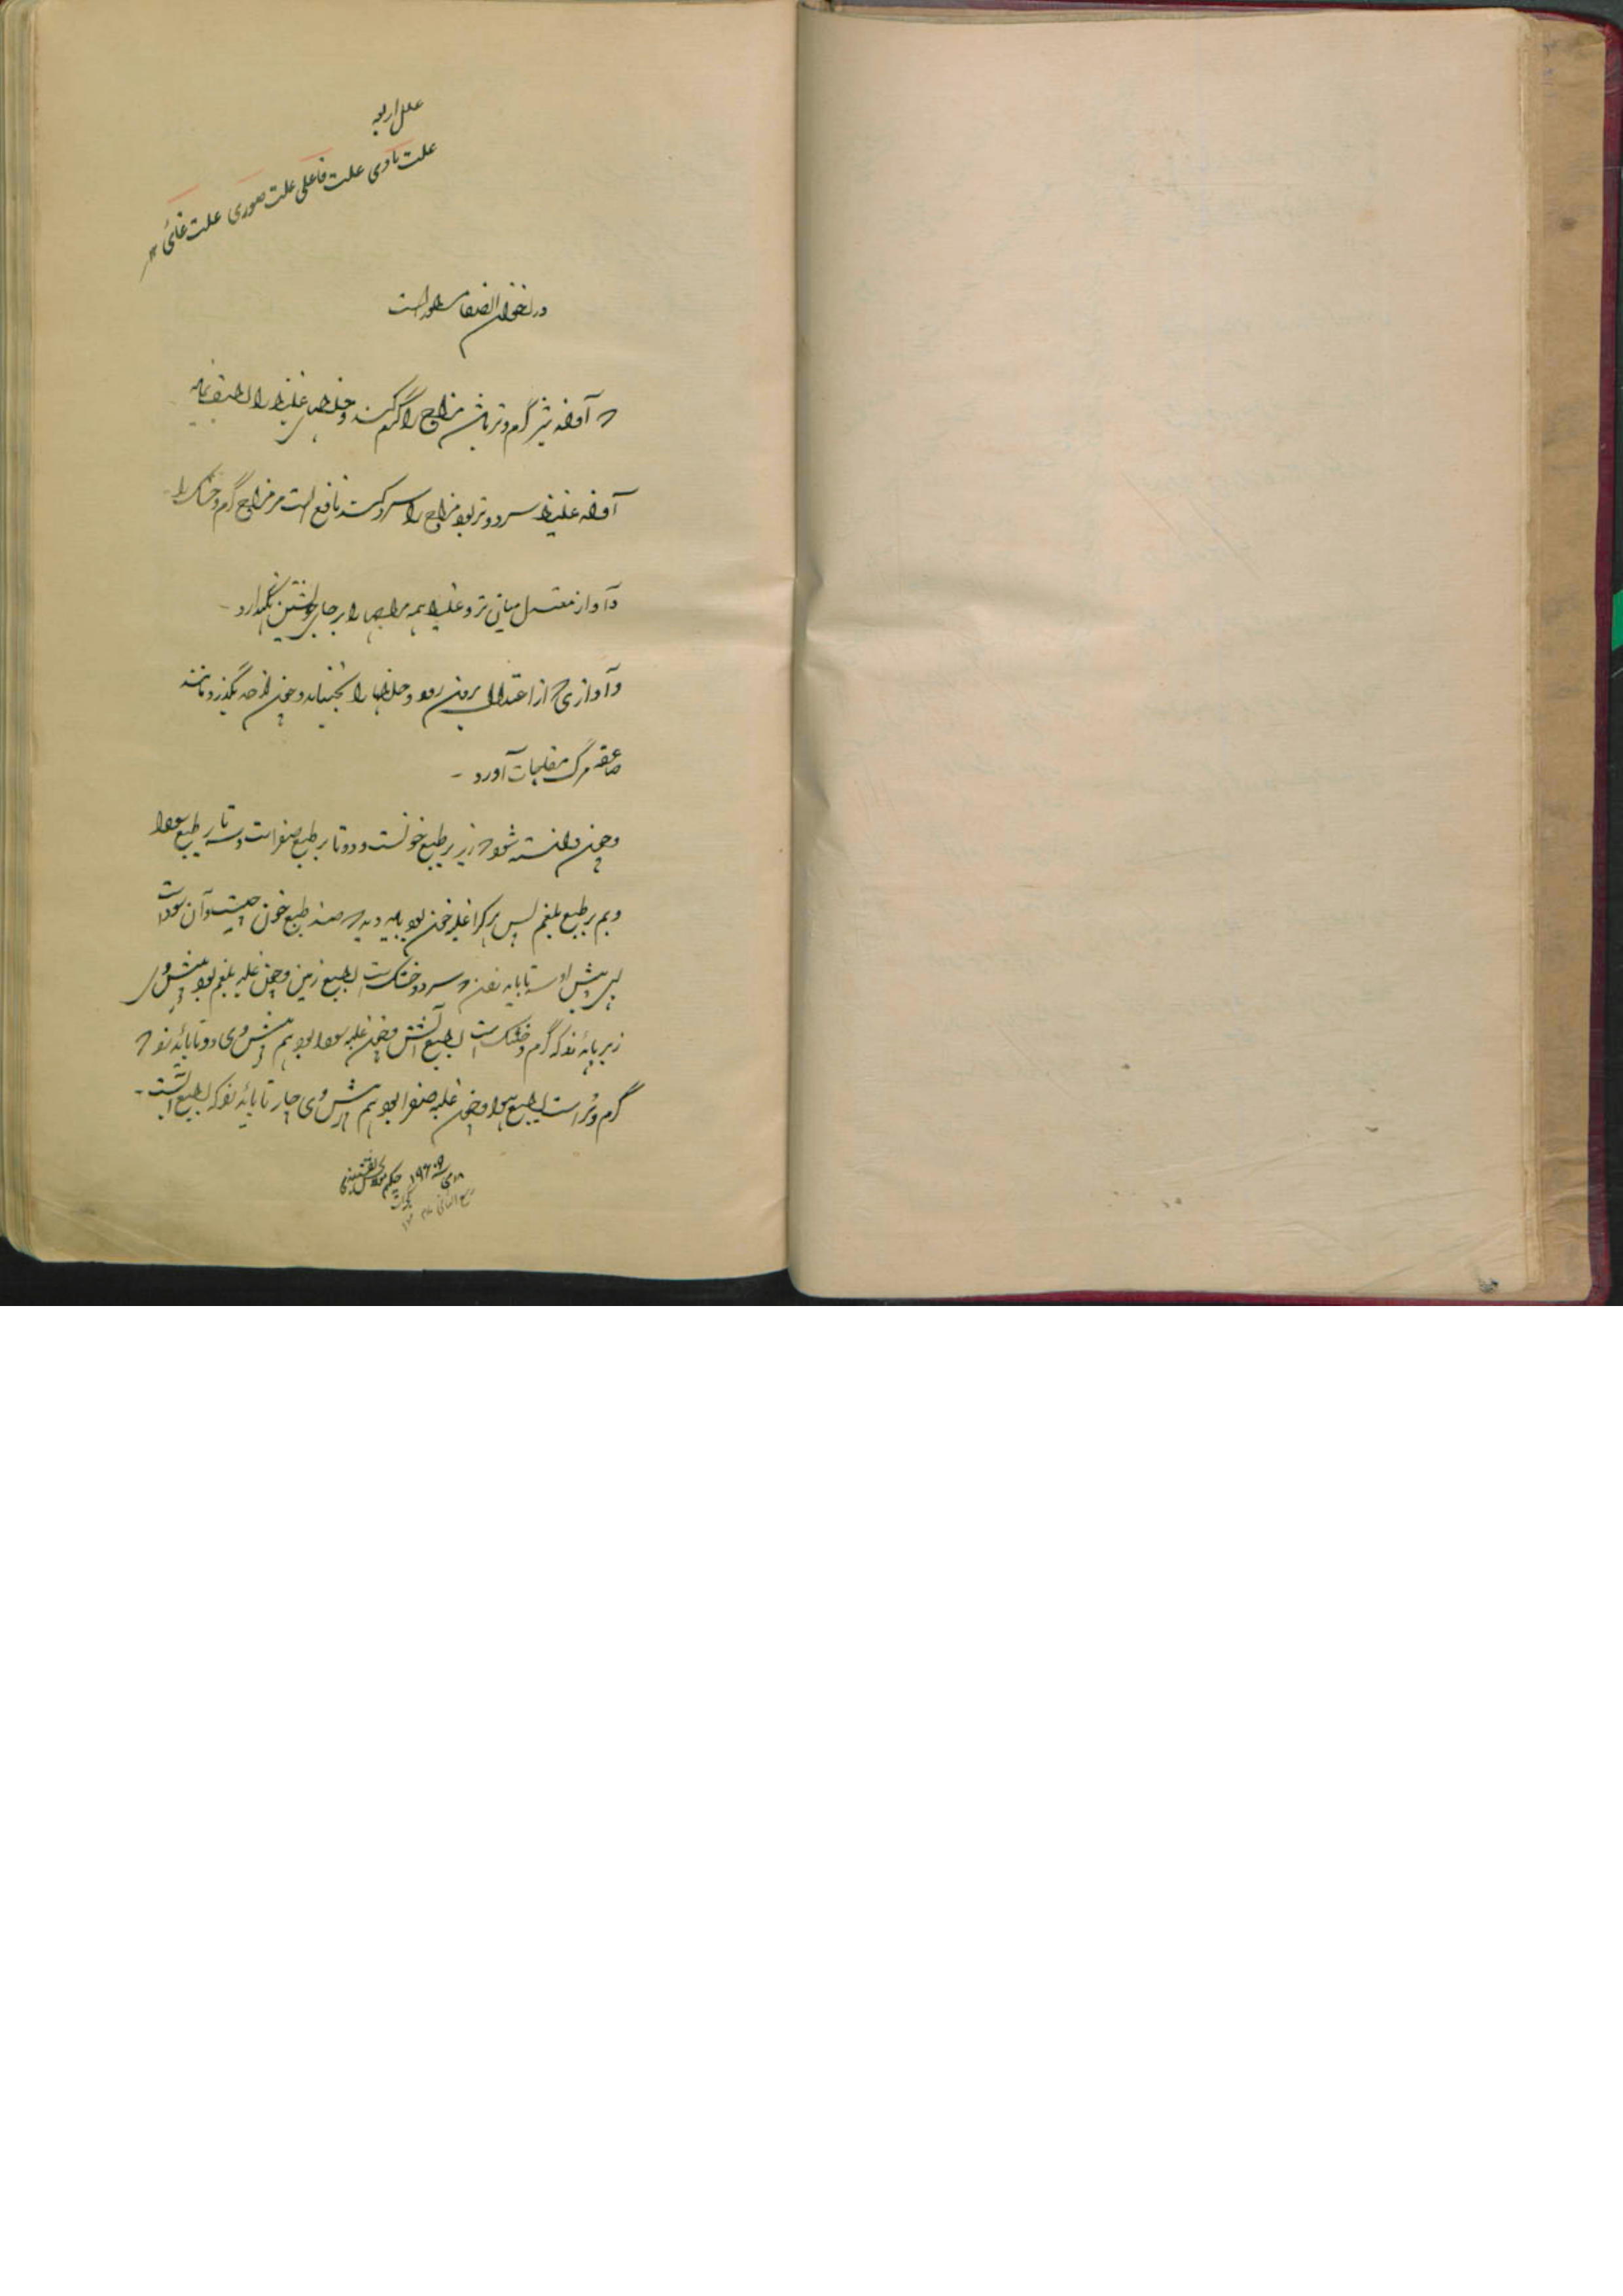 علل اربعه
علت مادی علت فاعلی علت صوری علت غائی ۱۲
در اخوان الصفا مسطور است
که آواز تیز گرم و تر باشد مزاج را گرم کند و خلطهای غلیظ را لطیف نماید
آواز غلیظ سرد و تر بود مزاج را سرد کند نافع است مر مزاج گرم و خشک را -
و آواز معتدل میان تز و غلیظ همه مزاجها را بر جای خویشتن نگهدارد -
و آوازی که از اعتدال برون رود و خلطها را بجنباند و چون از حد بگذرد مانند
صاعقه مرگ مفاجات آورد -
و چون دانسته شود که زیر بر طبع خونست و دو تا بر طبع صفراست و سه تا بر طبع سودا
و بم بر طبع بلغم پس هر کرا غلبه خون بود باید دید که ضد طبع خون چیست و آن سوداست
پس پیش او سه تا باید زدن که سرد و خشک است بطبع زمین و چون غلبه بلغم بود پیش وی
زیر باید زد که گرم و خشک است بطبع آتش و چون غلبه سودا بود هم پیش وی دو تا باید زد که
گرم و تر است بطبع هوا و چون غلبه صفرا بود هم پیش وی چار تا باید زد که بطبع آبست -
۸ می ۱۹۶۰ حکیم
ربیع الثانی